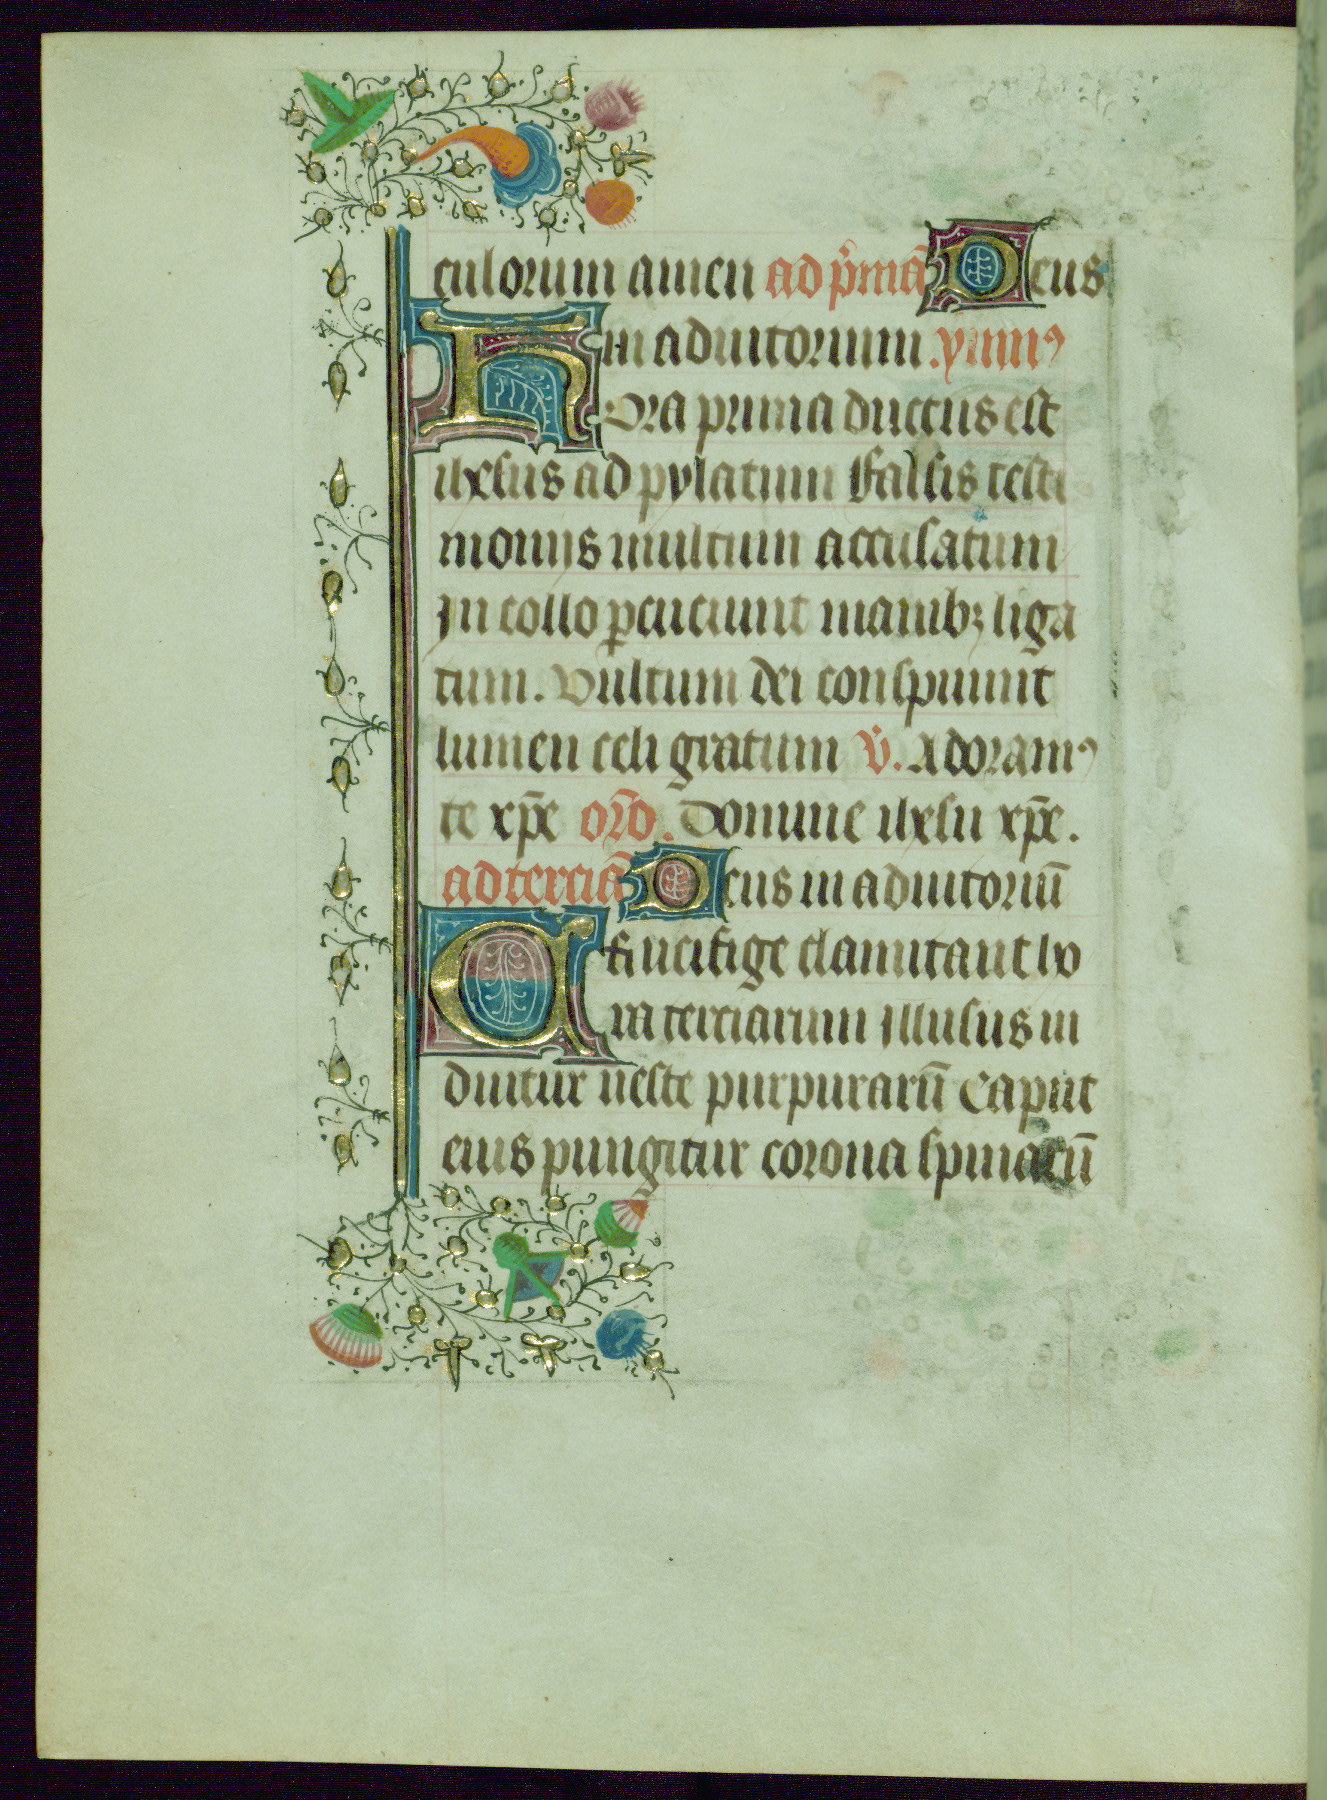 culorum amen ad p̄mā Deus
in adiutorium .ymnꝰ
Hora prima ductus est
ihesus ad pylatum falsis testi
monijs multum accusatum
In collo ꝑcuciunt manibꝫ liga
tum. Vultum dei conspuunt
lumen celi gratum v̄. Adoramꝰ
te xp̄e or̄o. Domine ihesu xp̄e.
ad terciā Deus in adiutoriū
Crucifige clamitant ho
ra terciarum Illusus in
duitur ueste purpurarū Caput
eius pungitur corona spinarū